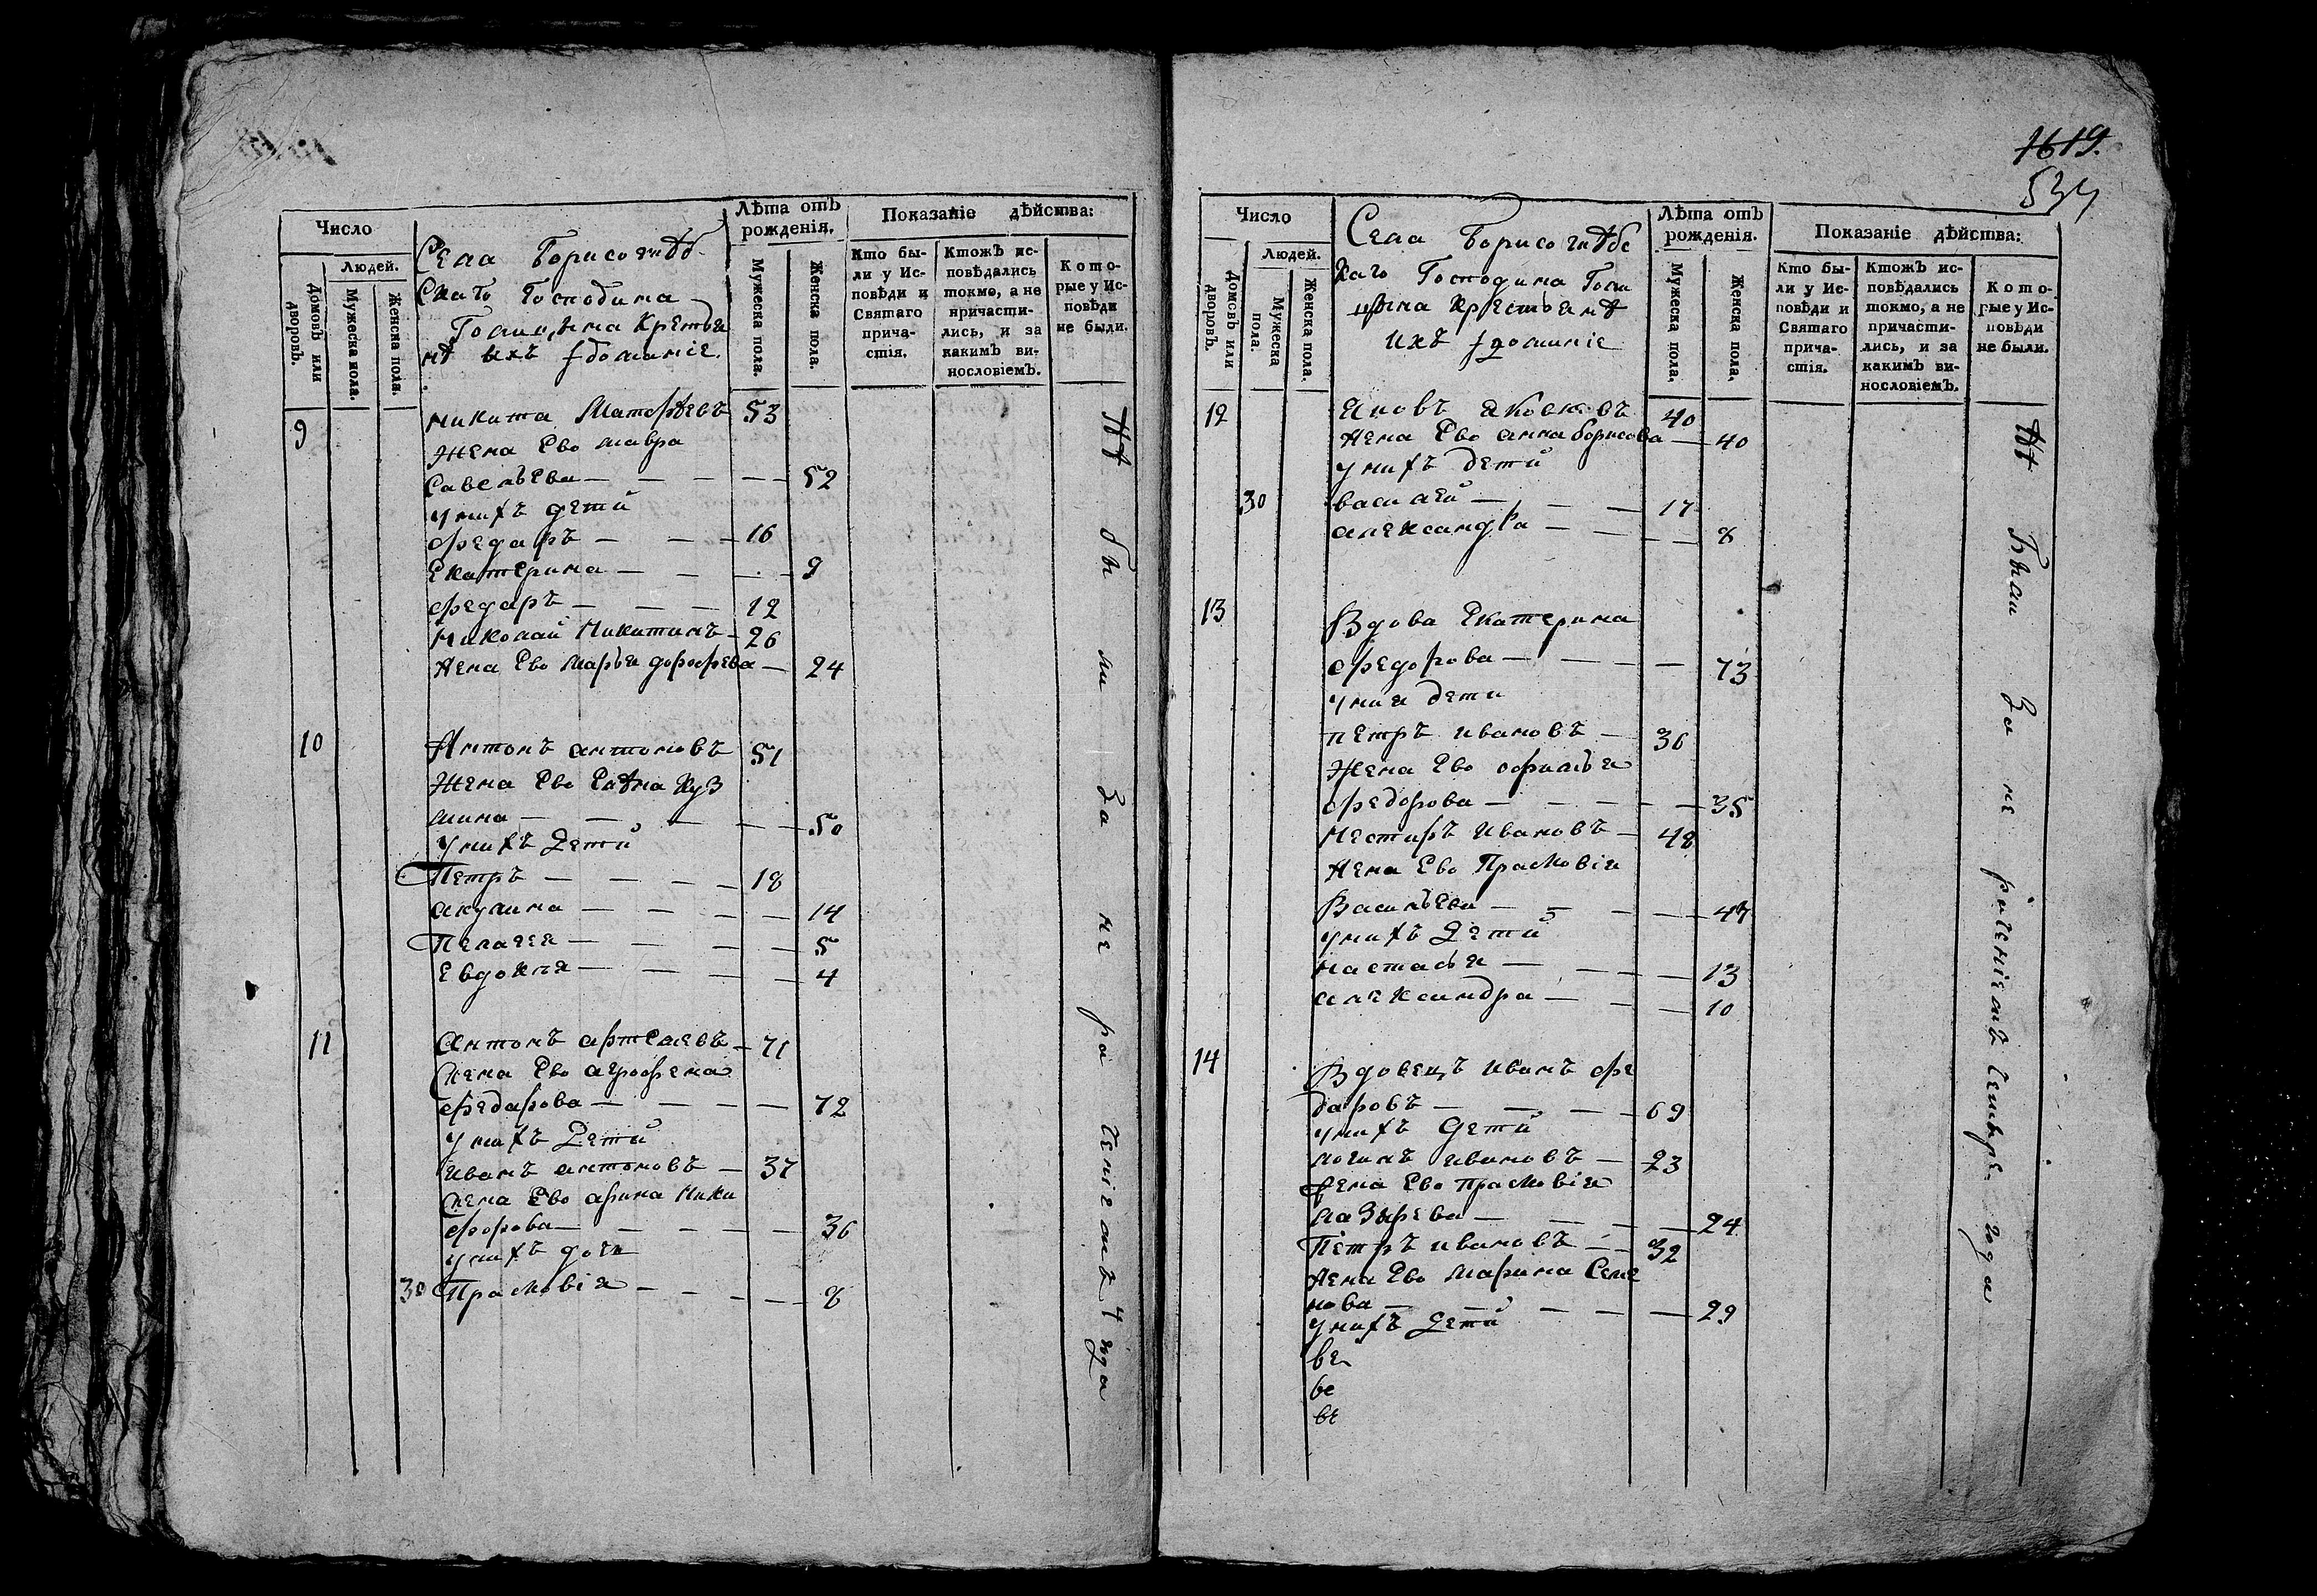 Число
Людей.
Домовъ или дворовъ.
Мужеска пола.
Женска пола.
Села Борисоглѣб
Скаго Господина
Голицына Кретья
нѣ ихъ
Лѣта отъ рожденія.
Мужеска пола.
Женска пола.
Показаніе дѣйства:
Кто бы-
ли у Ис-
повѣди и
Святаго
прича-
стія.
Ктожъ ис-
повѣдались
токмо, а не
причасти-
лись, и за
какимъ ви-
нословіемъ.
Кото-
рые у Ис-
повѣди
не были.
9 никита Матфѣевъ 53
Жена Ево мавра
Савельева — — — — 52
у нихъ дети
федаръ — — — 16
Екатерина — — — 9
федаръ — — — 12
Николай Никитинъ — 26
Жена Ево Марья дорофева — 24
10 Антонъ антоновъ 51
Жена Ево Елѣна Куз
мина — — — — 50
у нихъ Дети
Петръ — — — — 18
акулина — — — — 14
Пелагея — — — — 5
Евдокия — — — — 4
11 Антонъ артемевъ — 71
Жена Ево агрофена
федарова — — — — 72
у нихъ Дети
иванъ антоновъ — 37
Жена Ево арина Ники
форова — — — — 36
у нихъ дочь
30 Прасковія — — — — 8
Не бы ли За не ра ченіемъ 4 года
1619.
534
Число
Людей.
Домовъ или дворовъ.
Мужеска пола.
Женска пола.
Села Борисоглѣбс
Каго Господина Голи
цына Крестьянѣ
ихъ
Лѣта отъ рожденія.
Мужеска пола.
Женска пола.
Показаніе дѣйства:
Кто бы-
ли у Ис-
повѣди и
Святаго
прича-
стія.
Ктожъ ис-
повѣдались
токмо, а не
причасти-
лись, и за
какимъ ви-
нословіемъ.
Кото-
рые у Ис-
повѣди
не были.
12 Яковъ яковлевъ 40
Жена Ево анна борисова — 40
у нихъ дети
30 василей — — — 17
александра — — — — 8
13 Вдова Екатерина
федорова — — — — 73
у ния дети
петръ ивановъ — 36
Жена Ево софилья
федорова — — — — — 35
Нестиръ ивановъ — 48
Жена Ево Прасковія
Васильева — — — — 47
у нихъ Дети
настасья — — — — 13
александра — — — 10
14 Вдовецъ иванъ фе
даровъ — — — — 69
у нихъ Дети
логинъ ивановъ — 23
Жена Ево прасковія
лазырева — — — — 24
Петръ ивановъ — — 32
Жена Ево Марина Семе
нова — — — — — 29
у нихъ Дети
ве
ве
ве
Не были За не раченіемъ четыре года